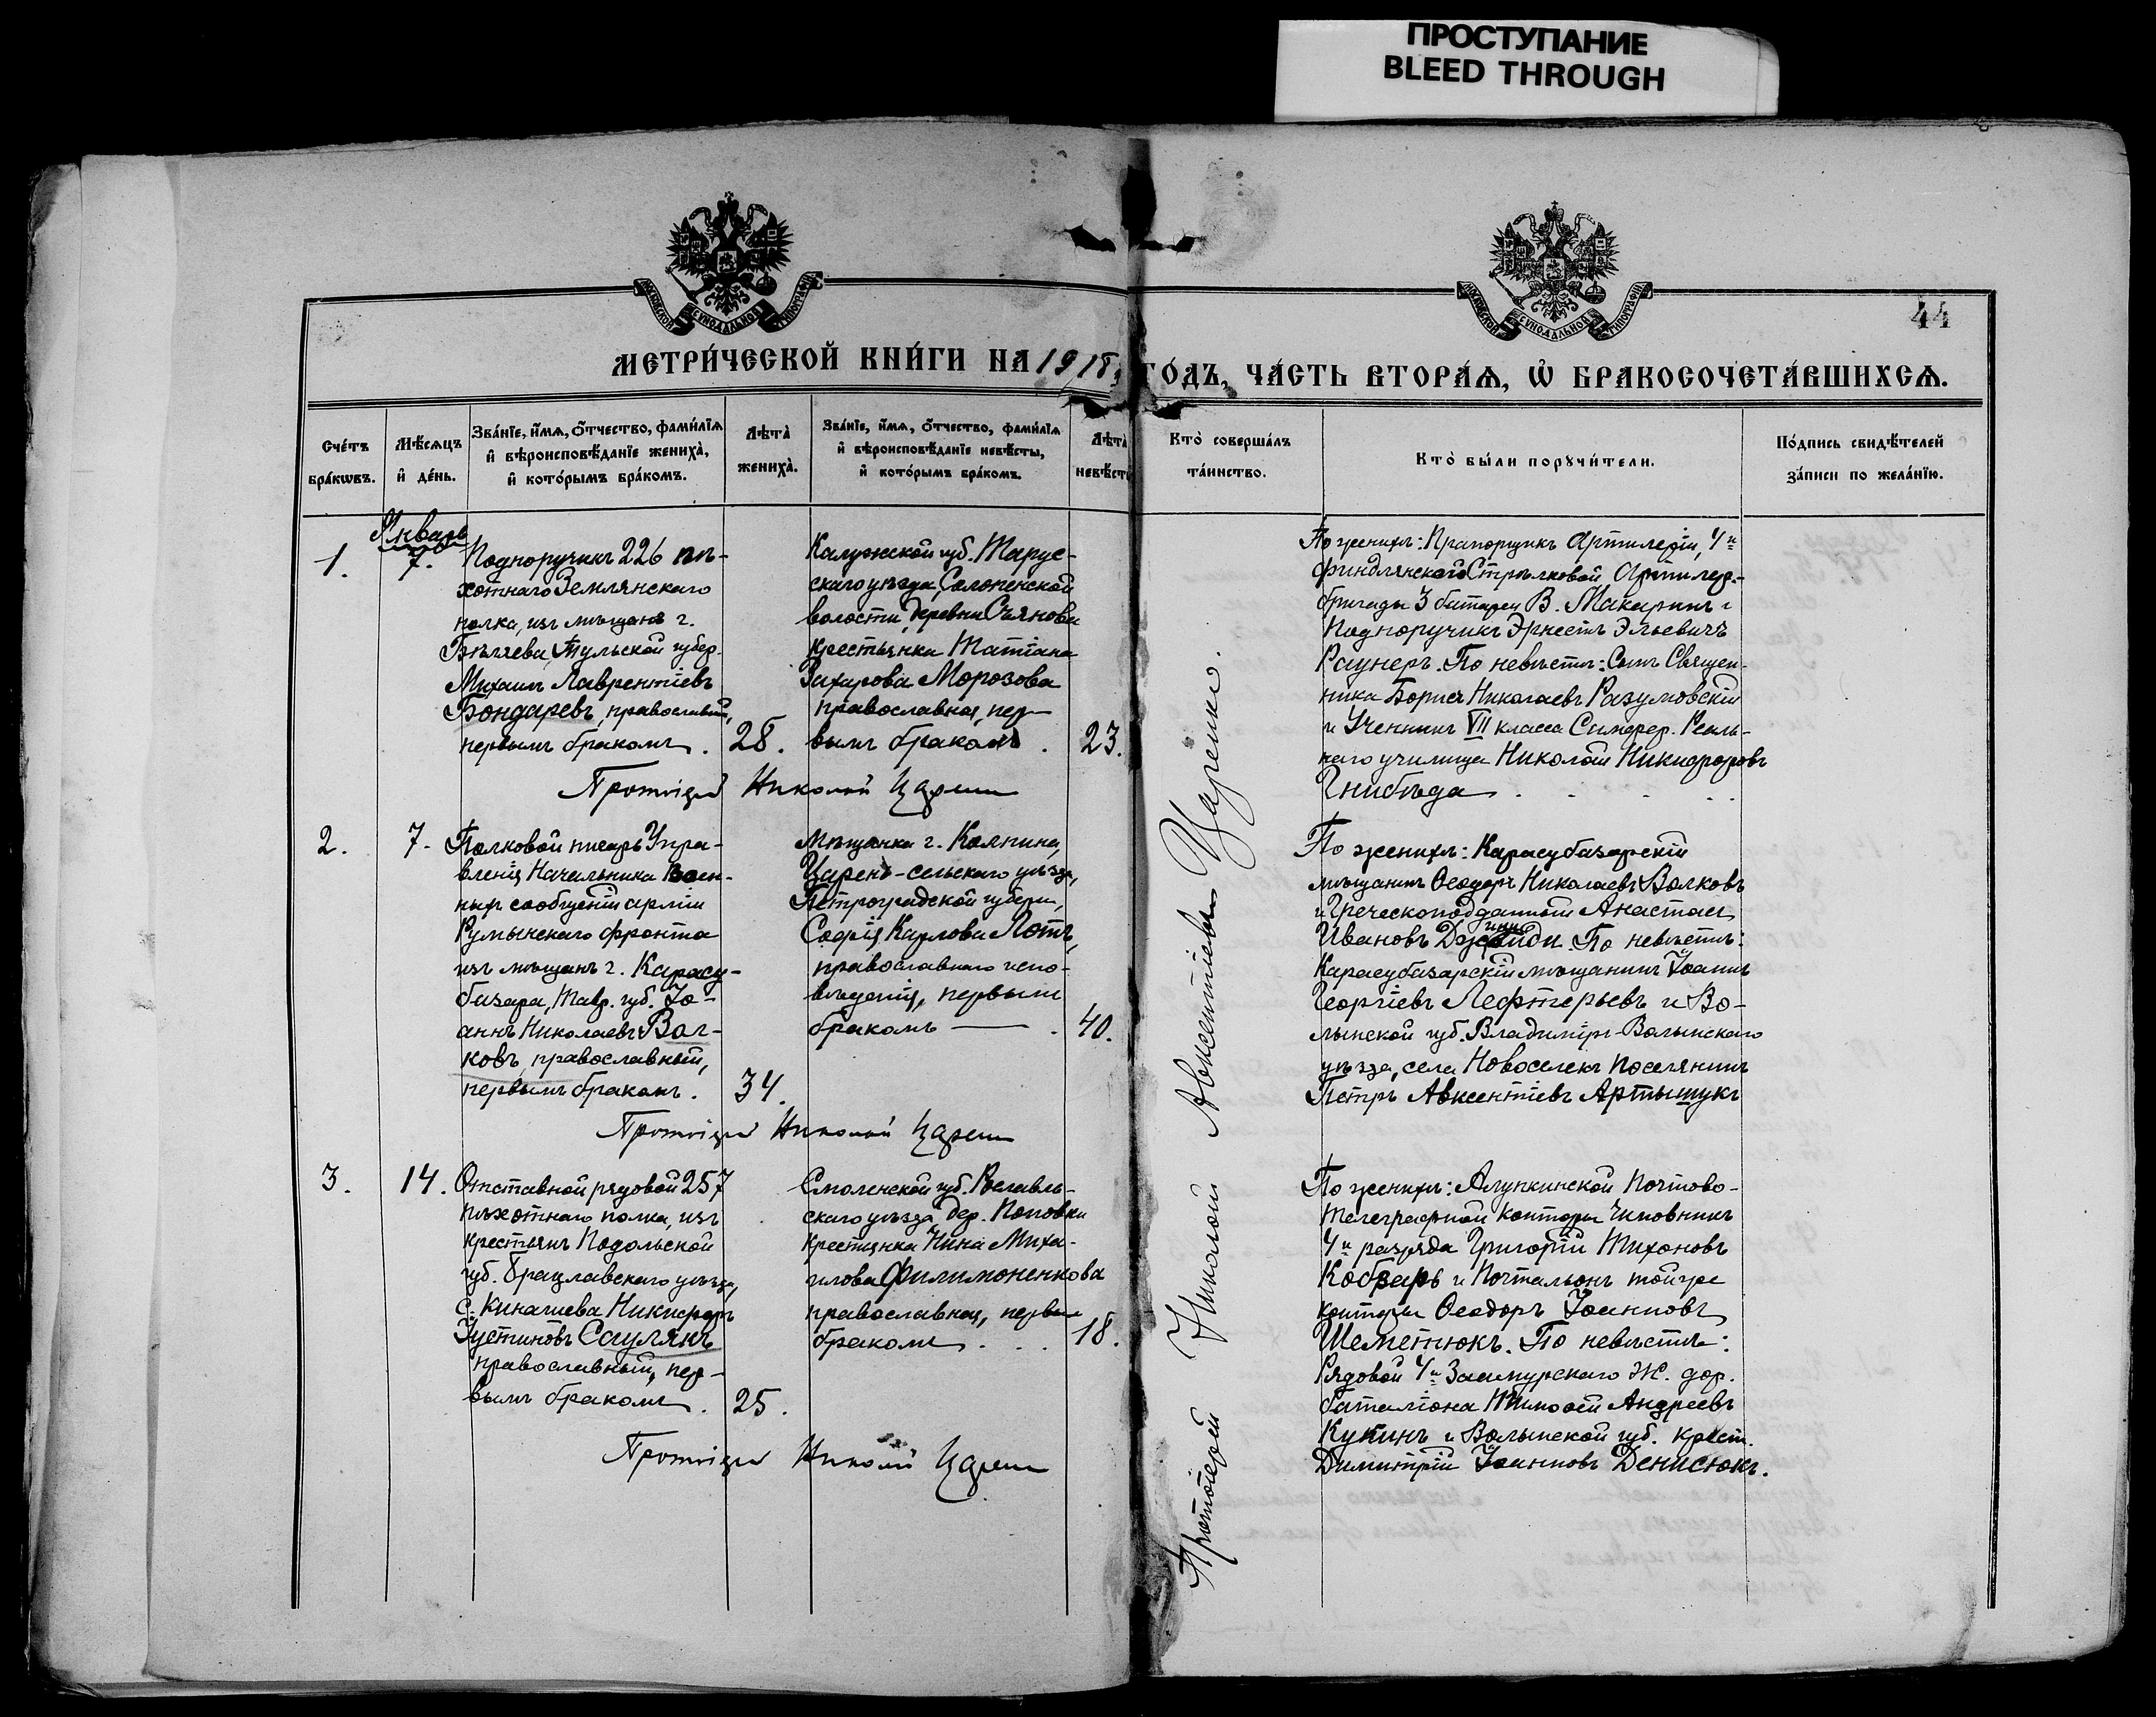 ПРОСТУПАНИЕ
BLEED THROUGH
44
МЕТРИ́ЧЕСКОЙ КНИ́ГИ НА 1918 ГО́ДЪ, ЧА́СТЬ ВТОРА́Ѧ, Ѡ БРАКОСОЧЕТА́ВШИХСѦ.
Сче́тъ бра́кѡвъ.
Мѣ́сѧцъ и де́нь.
Зва́нїе, и́мѧ, о́тчество, фами́лїѧ и вѣроисповѣ́данїе жениха̀, и кото́рымъ бра́комъ.
Лѣта̀ жениха̀.
Зва́нїе, и́мѧ, о́тчество, фами́лїѧ и вѣроисповѣ́данїе невѣ́сты, и кото́рымъ бра́комъ.
Лѣта̀ невѣ́сты
Кто̀ соверша́лъ та́инство.
Кто̀ бы́ли пору́чи́тели.
По́дпись свидѣ́телей за́писи по жела́нїю.
Январь
1.
7.
Подпоручикъ 226 пѣ-
хотнаго Землянскаго
полка, изъ мѣщанъ г.
Бѣляева, Тульской губер.
Михаилъ Лаврентіевъ
Бондаревъ, православный,
первымъ бракомъ. 28.
Калужской губ. Тарус-
скаго уѣзда, Салопенской
волости, деревни Съяновки
крестьянка Татіана
Захарова Морозова
православная, пер-
вымъ бракомъ. 23.
Протоіерей Николай Царенко
По женихѣ: Прапорщикъ Артилеріи, 4й
Финдлянской Стрѣлковой Артилер.
бригады 3 батареи В. Макаринъ и
Подпоручикъ Эрнестъ Эльевичъ
Раунеръ. По невѣстѣ: Сынъ Священ-
ника Борисъ Николаевъ Разумовскій
и Ученикъ VII класса Симфер. Реаль-
наго училища Николай Никифоровъ
Гнибѣда
2.
7.
Полковой писарь Упра-
вленія Начальника Воен-
ныхъ сообщеній арміи
Румынскаго фронта
изъ мѣщанъ г. Карасу-
базара, Тавр. губ. Іо-
аннъ Николаевъ Вол-
ковъ, православный,
первымъ бракомъ. 34.
Мѣщанка г. Колпина,
Царско-сельскаго уѣзда,
Петроградской губерн.,
Софія Карлова Лотъ,
православнаго испо-
вѣданія, первымъ
бракомъ 40.
Протоіерей Николай Царенко
По женихѣ: Карасубазарскій
мѣщанинъ Ѳеодоръ Николаевъ Волковъ
и Греческоподданный Анастасъ
Ивановъ По невѣстѣ:
Карасубазарскій мѣщанинъ Іоаннъ
Георгіевъ Лефтерьевъ и Во-
лынской губ. Владимір-Волынскаго
уѣзда, села Новоселекъ поселянинъ
Петръ Авксентіевъ Артышукъ
3.
14.
Отставной рядовой 257
пѣхотнаго полка, изъ
крестьянъ Подольской
губ. Брацлавскаго уѣзда,
с. Киначева Никифоръ
Іустиновъ Саулякъ
православный, пер-
вымъ бракомъ. 25.
Смоленской губ. Рославль-
скаго уѣзда, дер. Поповки
крестьянка Нина Миха-
илова Филимоненкова
православная, первымъ
бракомъ 18.
Протоіерей Николай Царенко
По женихѣ: Алупкинской Почтово-
телеграфной конторы чиновникъ
4го разряда Григорій Тихоновъ
Кобзарь и Почтальонъ той же
конторы Ѳеодоръ Іоанновъ
Шеметюкъ. По невѣстѣ:
Рядовой 4го Заамурскаго Ж. дор.
баталіона Тимоѳей Андреевъ
Купинъ и Волынской губ. крест.
Димитрій Іоанновъ Денисюкъ.
Протоіерей Николай Авксентіевъ Царенко.